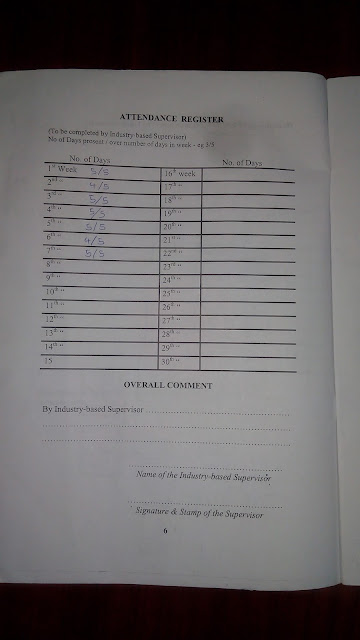 ATTENDANCE REGISTER
(To be completed by Industry-based Supervisor)
No of Days present / over number of days in week - eg 5/5
No. of Days No. of Days
1st Week 5/5 16th week
2nd “ 4/5 17th “
3rd “ 5/5 18th “
4th “ 5/5 19th “
5th “ 5/5 20th “
6th “ 4/5 21st “
7th “ 5/5 22nd “
8th “ 23rd “
9th “ 24th “
10th “ 25th “
11th “ 26th “
12th “ 27th “
13th “ 28th “
14th “ 29th “
15 30th “
OVERALL COMMENT
By Industry-based Supervisor
Name of the Industry-based Supervisor
Signature & Stamp of the Supervisor
6